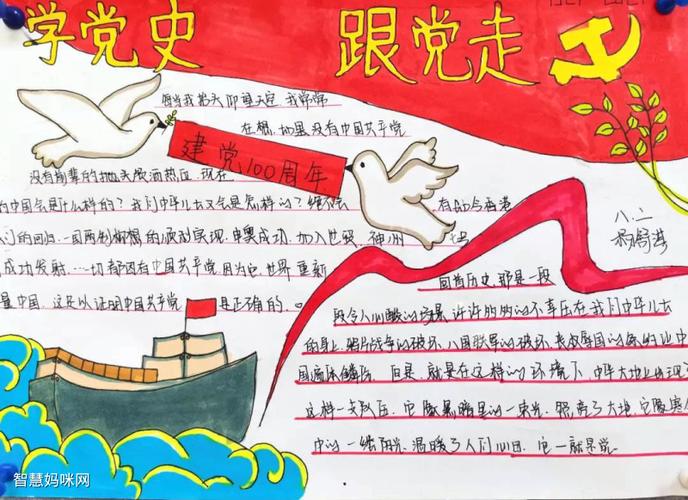 学党史 跟党走
每当我抬头仰望天空,我常常
在想,如果没有中国共产党
建党100周年
没有前辈的抛头颅洒热血,现在
的中国会是什么样的?我们中华儿女又会是怎样的?绝不会
有如今香港
们的回归,一国两制构想的顺利实现,申奥成功,加入世贸,神州
成功发射,一切都因有中国共产党,因为它,世界重新
量中国,这足以证明中国共产党 是正确的。
八.二
回首历史,那是一段
段令人心酸的场景,许许多多的不幸压在我们中华儿女
的身上,鸦片战争的破坏,八国联军的破坏,丧权辱国的条约让中
国遍体鳞伤。但是,就是在这样的环境下,中华大地出现了
这样一支队伍,它像黑暗里的一束光,照亮了大地,它像寒冬
中的一缕阳光,温暖了人们心田,它一就是党。
智慧妈咪网